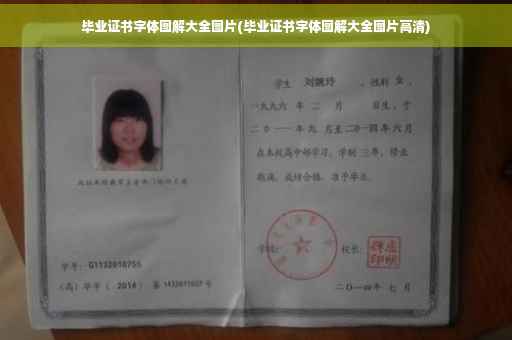 毕业证书字体图解大全图片(毕业证书字体图解大全图片高清)
学生 刘婉玲 ，性别 女 ，
一九九六 年 二 月 日生，于
二〇一一 年 九 月至 二〇一四 年 六 月
在本校高中部学习，学制 三 年，修业
期满，成绩合格，准予毕业。
学校：
校长：
二〇一四 年 七 月
学号： G1132010755
（高）毕字（ 2014 ）第 1432011027 号